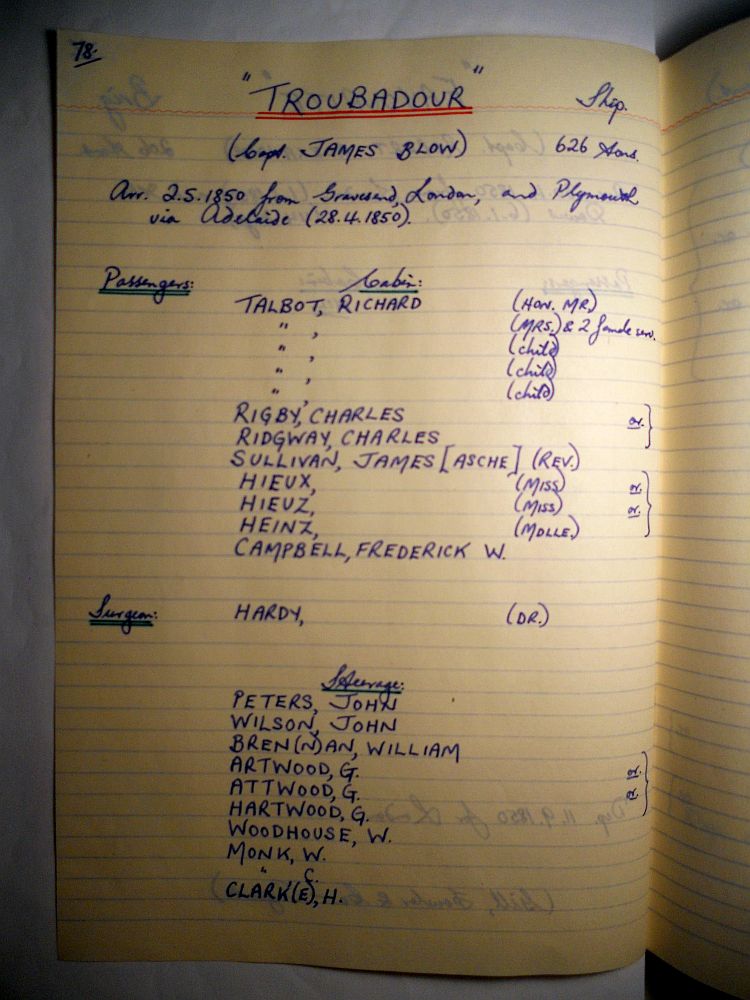 78.
"TROUBADOUR" Ship.
(Capt. JAMES BLOW) 626 tons.
Arr. 2.5.1850 from Gravesend, London, and Plymouth
via Adelaide (28.4.1850).
Passengers: Cabin:
TALBOT, RICHARD (HON. MR)
" , (MRS.) & 2 female serv.
" , (child)
" , (child)
" , (child)
RIGBY, CHARLES or.
RIDGWAY, CHARLES
SULLIVAN, JAMES [ASCHE] (REV.)
HIEUX, (MISS) or.
HIEUZ, (MISS) or.
HEINZ, (MDLLE.)
CAMPBELL, FREDERICK W.
Surgeon: HARDY, (DR.)
Steerage:
PETERS, JOHN
WILSON, JOHN
BREN(N)AN, WILLIAM
ARTWOOD, G. or.
ATTWOOD, G. or.
HARTWOOD, G.
WOODHOUSE, W.
MONK, W.
" C.
CLARK(E), H.